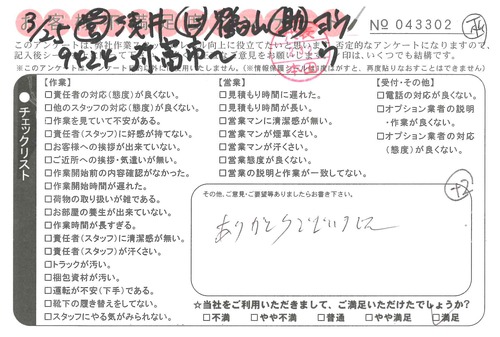 お客様満足度
3/25 営 浅井 助
No 043302
9424 弥富市へ
このアンケートは、弊社作業
※このアンケートは
【作業】
□責任者の対応（態度）が良くない。
□他のスタッフの対応（態度）が良くない。
□作業を見ていて不安がある。
□責任者（スタッフ）に好感が持てない。
□お客様への挨拶が出来ていない。
□ご近所への挨拶・気遣いが無い。
□作業開始前の内容確認がなかった。
□作業開始時間が遅れた。
□荷物の取り扱いが雑である。
□お部屋の養生が出来ていない。
□作業時間が長すぎる。
□責任者（スタッフ）に清潔感が無い。
□責任者（スタッフ）が汗くさい。
□トラックが汚い。
□梱包資材が汚い。
□運転が不安（下手）である。
□靴下の履き替えをしてない。
□スタッフにやる気がみられない。
【営業】
□見積もり時間に遅れた。
□見積もり時間が長い。
□営業マンに清潔感が無い。
□営業マンが煙草くさい。
□営業マンが汗くさい。
□営業態度が良くない。
□営業の説明と作業が一致してない。
【受付・その他】
□電話の対応が良くない。
□オプション業者の説明
・作業が良くない。
□オプション業者の対応
（態度）が良くない。
チェックリスト
その他、ご意見・ご要望等ありましたらお書き下さい。
+2
ありがとうございました
☆当社をご利用いただきまして、ご満足いただけたでしょうか？
□不満 □やや不満 □普通 □やや満足 □満足